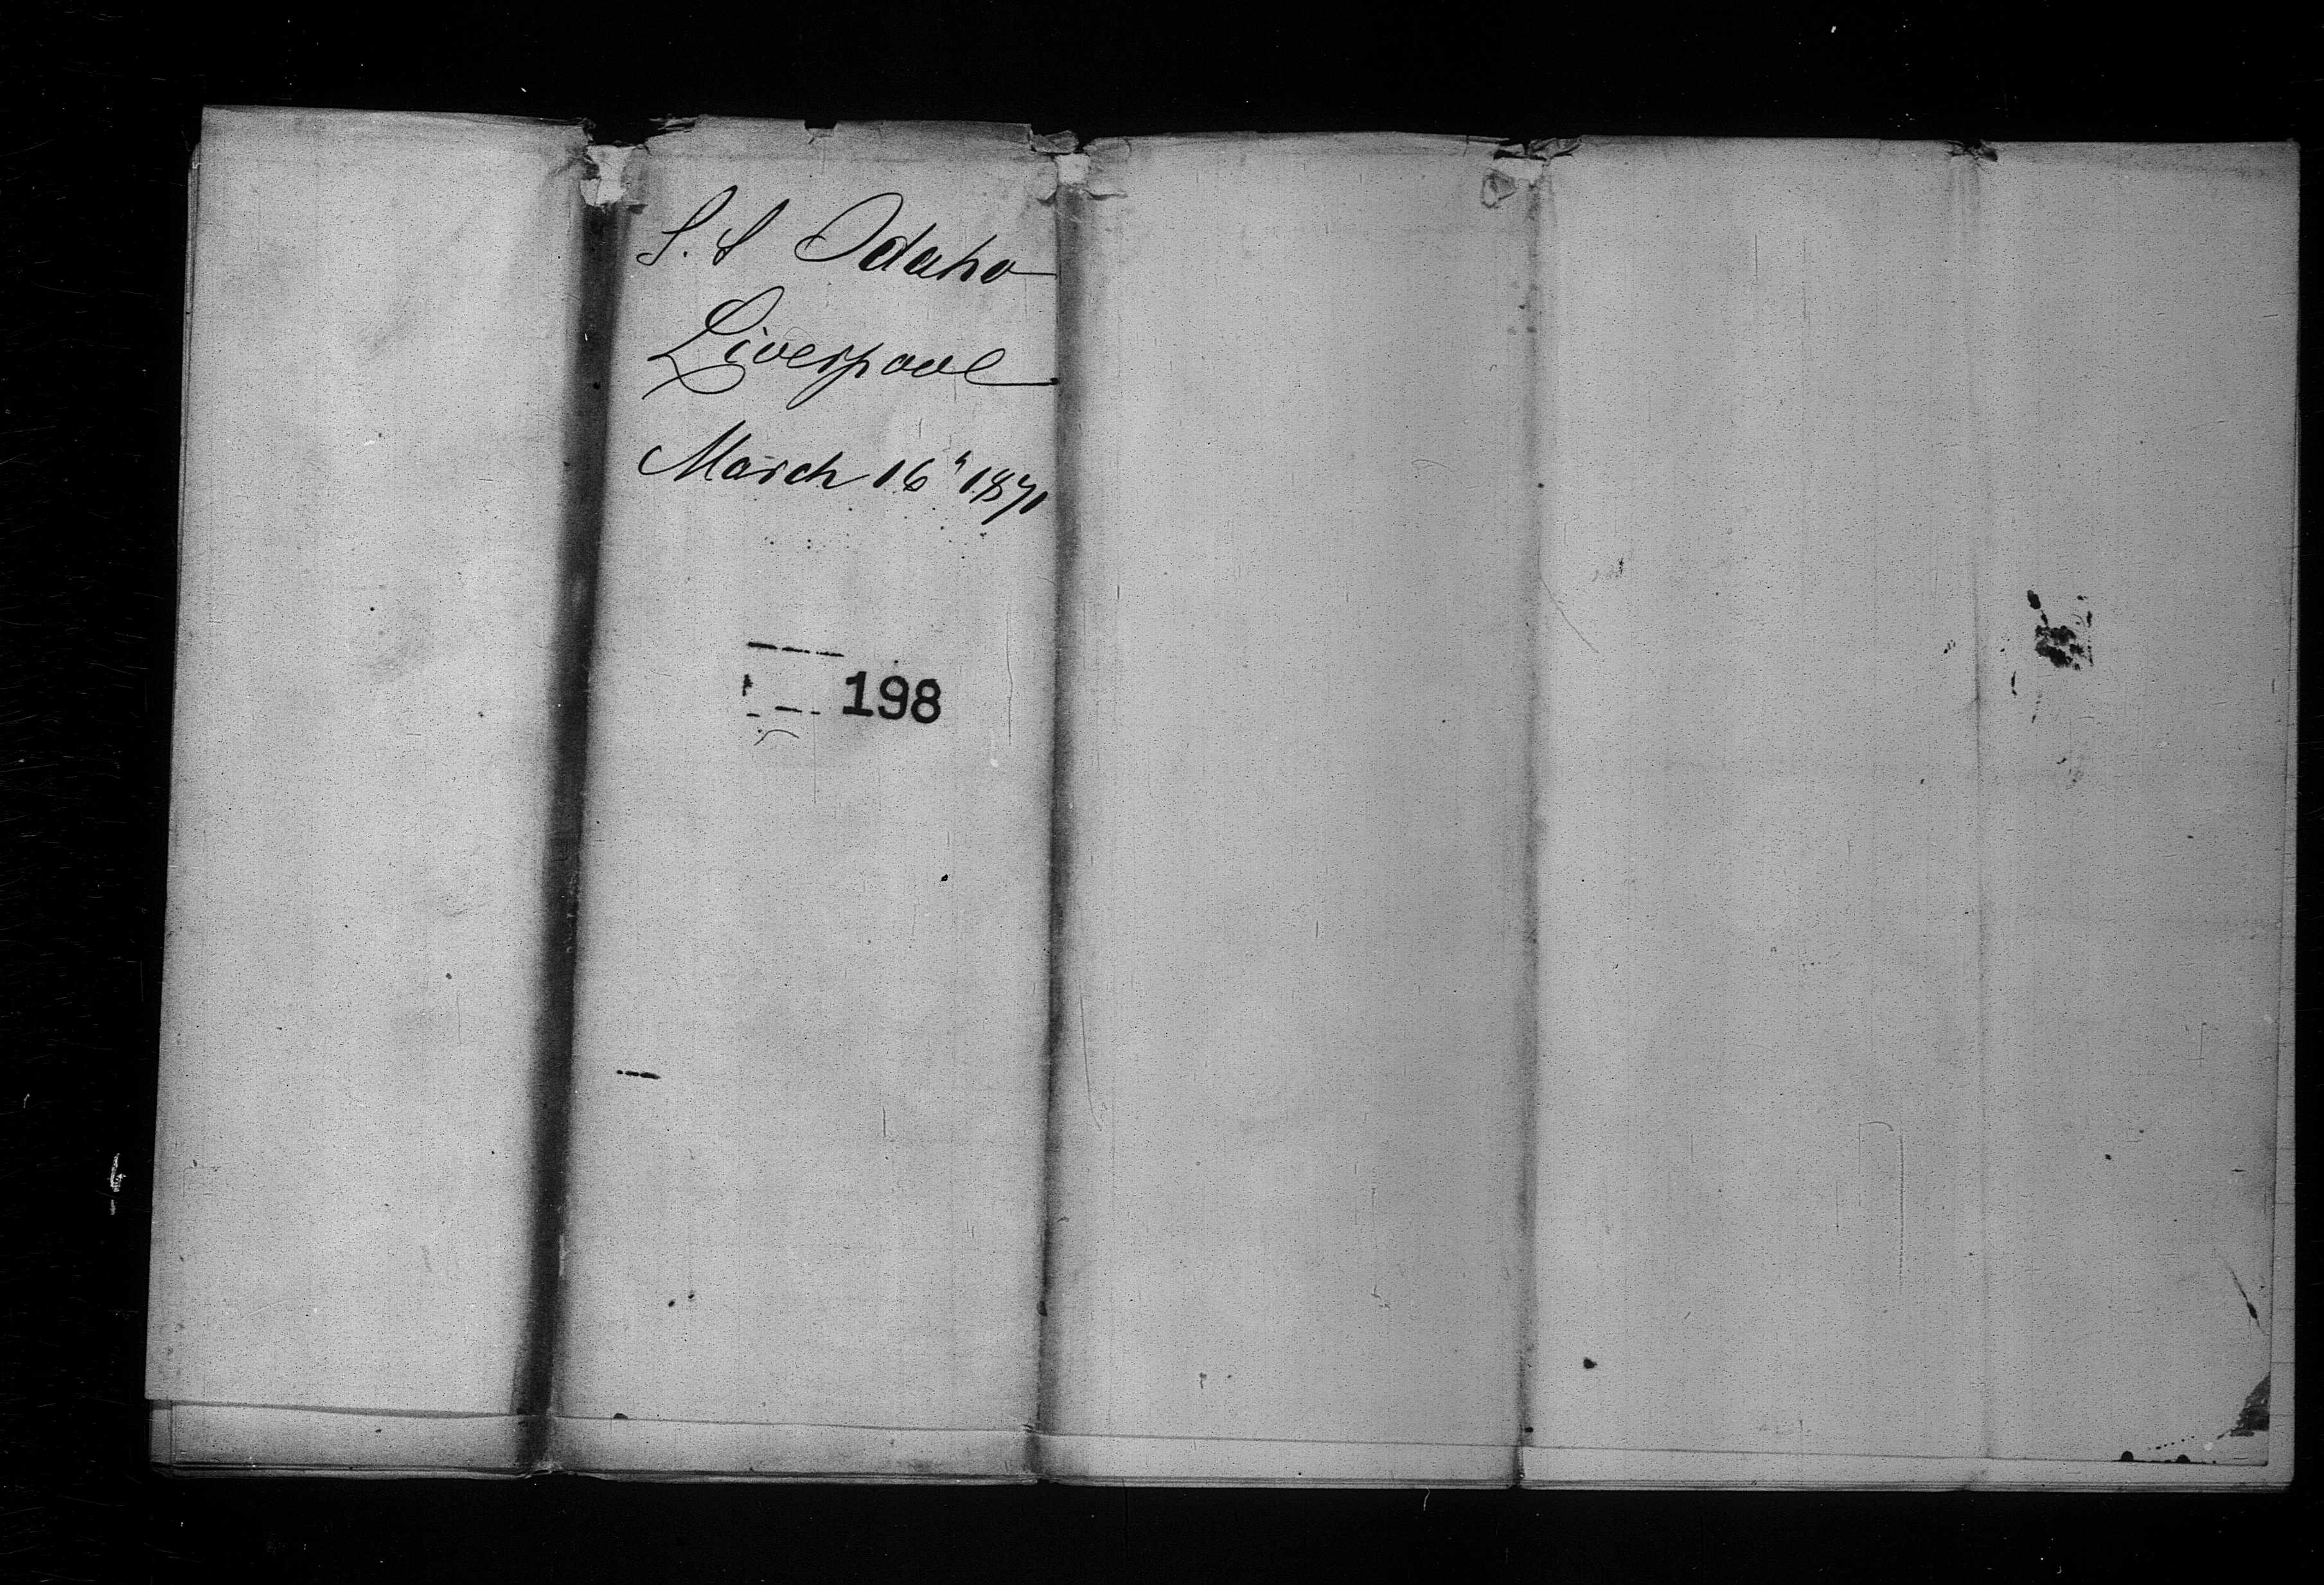 S. S Idaho
Liverpool
March 16" 1871
198